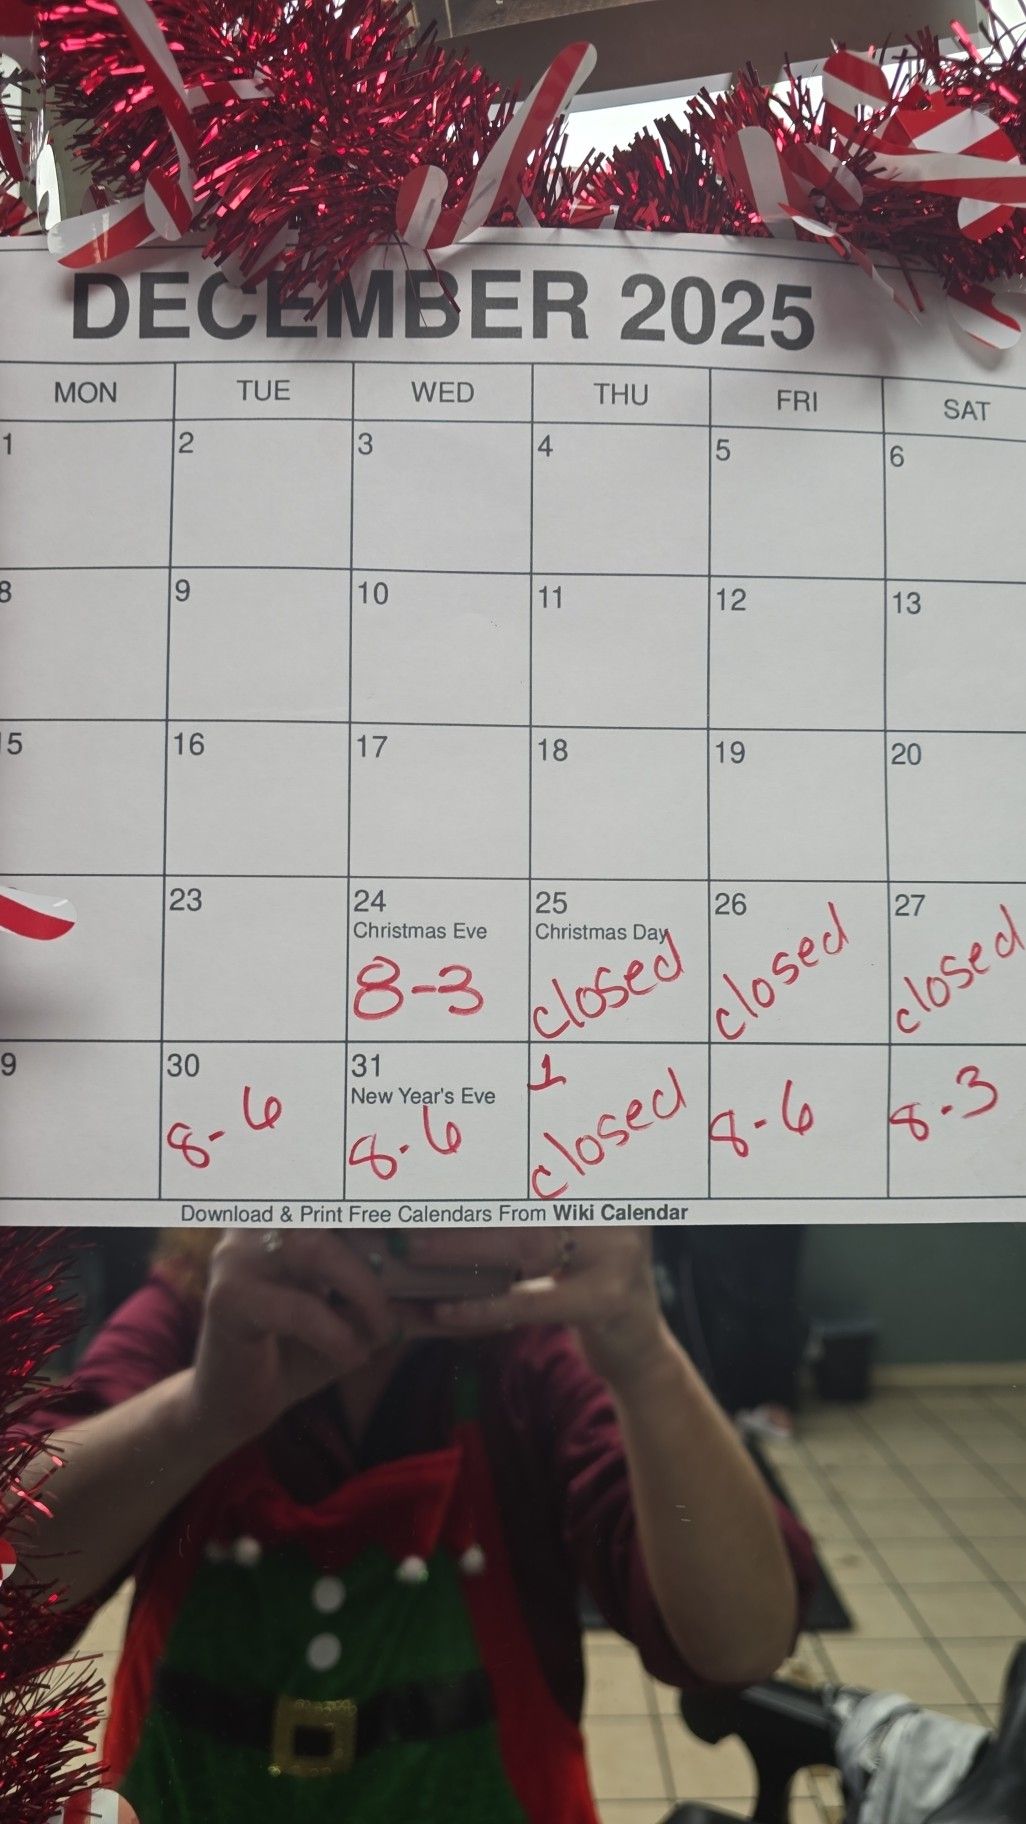 DECEMBER 2025
MON TUE WED THU FRI SAT
1 2 3 4 5 6
8 9 10 11 12 13
5 16 17 18 19 20
23 24 25 26 27
Christmas Eve Christmas Day
8-3 closed closed closed
9 30 31 1
New Year's Eve
8-6 8-6 closed 8-6 8-3
Download & Print Free Calendars From Wiki Calendar